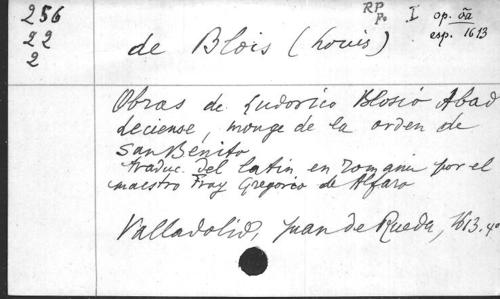 256
22
2
RP
P.
I op. õa
esp. 1613
de Blois (Louis)
Obras de Ludovico Blosio Abad
Leciense, monge de la orden de
San Benito
traduc. del latin en romance por el
maestro Fray Gregorio de Alfaro
Valladolid, Juan de Rueda, 1613. 4º